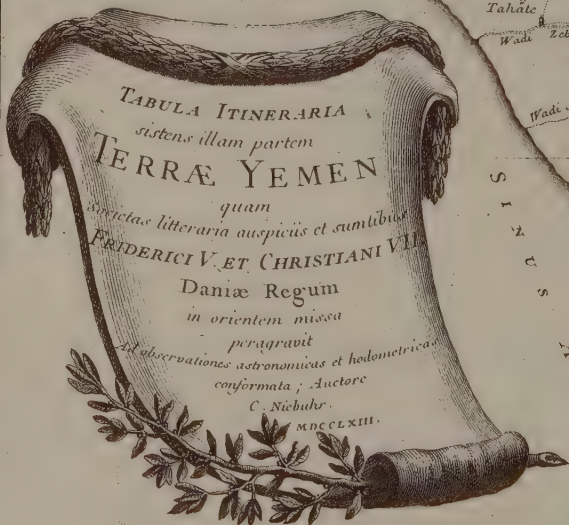 TABULA ITINERARIA
sistens illam partem
TERRÆ YEMEN
quam
societas litteraria auspiciis et sumtibus
FRIDERICI V. ET CHRISTIANI VII.
Daniæ Regum
in orientem missa
peragravit
Ad observationes astronomicas et hodometricas
conformata; Auctore
C. Niebuhr.
MDCCLXIII.
Tahâte
Wadi Zeb
Wadi
SINUS